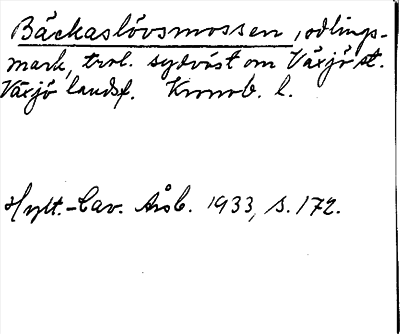 Bäckaslövsmossen, odlings-
mark, trol. sydväst om Växjö st.
Växjö landsf. Kronob. l.
Hylt.-Cav. Årsb. 1933, s. 172.